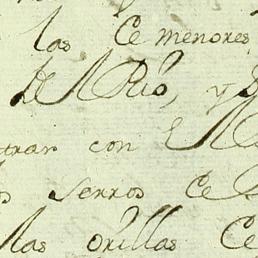 las Ce menores
del Rio, y
trar con el
serros Ce
las orillas Ce